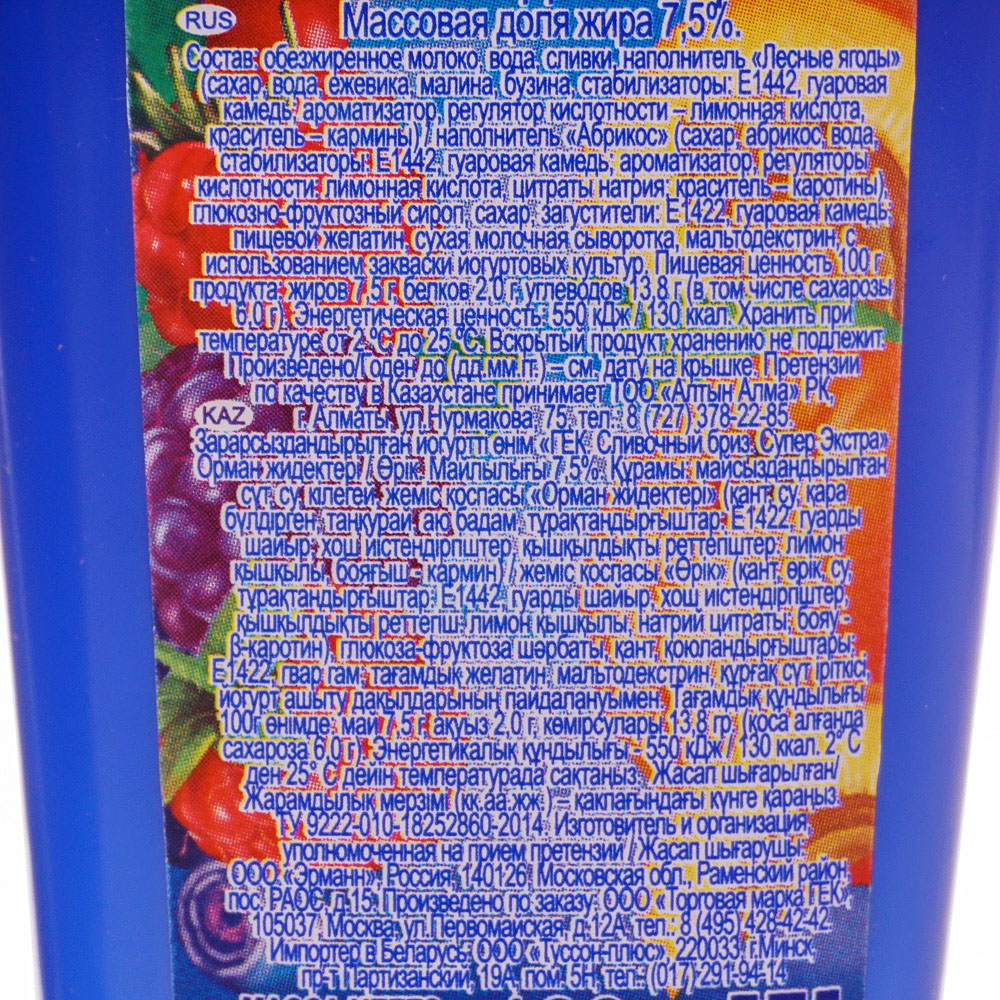 RUS
Массовая доля жира 7,5%.
Состав: обезжиренное молоко, вода, сливки, наполнитель «Лесные ягоды»
(сахар, вода, ежевика, малина, бузина, стабилизаторы: Е1442, гуаровая
камедь, ароматизатор, регулятор кислотности – лимонная кислота,
краситель – кармины) / наполнитель «Абрикос» (сахар, абрикос, вода,
стабилизаторы: Е1442, гуаровая камедь, ароматизатор, регуляторы
кислотности: лимонная кислота, цитраты натрия; краситель – каротины),
глюкозно-фруктозный сироп, сахар, загустители: Е1422, гуаровая камедь,
пищевой желатин, сухая молочная сыворотка, мальтодекстрин, с
использованием закваски йогуртовых культур. Пищевая ценность 100 г
продукта: жиров 7,5 г, белков 2,0 г, углеводов 13,8 г (в том числе сахарозы
6,0 г). Энергетическая ценность: 550 кДж / 130 ккал. Хранить при
температуре от 2 °С до 25 °С. Вскрытый продукт хранению не подлежит.
Произведено/Годен до (дд.мм.гг.) – см. дату на крышке. Претензии
по качеству в Казахстане принимает ТОО «Алтын Алма» РК,
г. Алматы, ул. Нурмакова, 75, тел.: 8 (727) 378-22-85.
KAZ
Зарарсыздандырылған йогуртті өнім «ГЕК. Сливочный бриз. Супер Экстра»
Орман жидектері / Өрік. Майлылығы 7,5%. Құрамы: майсыздандырылған
сүт, су, кілегей, жеміс қоспасы «Орман жидектері» (қант, су, қара
бүлдірген, таңқурай, аю бадам, тұрақтандырғыштар: Е1422, гуарды
шайыр, хош иістендіргіштер, қышқылдықты реттегіштер: лимон
қышқылы, бояғыш - кармин) / жеміс қоспасы «Өрік» (қант, өрік, су,
тұрақтандырғыштар: Е1442, гуарды шайыр, хош иістендіргіштер,
қышқылдықты реттегіш: лимон қышқылы, натрий цитраты, бояу -
β-каротин), глюкоза-фруктоза шәрбаты, қант, қоюландырғыштары:
Е1422, гвар гам; тағамдық желатин, мальтодекстрин, құрғақ сүт іріткісі,
йогурт ашыту дақылдарының пайдалануымен. Тағамдық құндылығы
100г өнімде: май 7,5 г, ақуыз 2,0 г, көмірсулары 13,8 гр. (қоса алғанда
сахароза 6,0 г). Энергетикалық құндылығы - 550 кДж / 130 ккал. 2° С
ден 25° С дейін температурада сақтаңыз. Жасап шығарылған/
Жарамдылық мерзімі (кк.аа.жж.) – қақпағындағы күнге қараңыз.
ТУ 9222-010-18252860-2014. Изготовитель и организация,
уполномоченная на прием претензий / Жасап шығарушы:
ООО «Эрманн», Россия, 140126, Московская обл., Раменский район,
пос. РАОС, д.15. Произведено по заказу: ООО «Торговая марка ГЕК»,
105037, Москва, ул.Первомайская, д.12А, тел.: 8 (495) 428-42-42.
Импортер в Беларусь: ООО «Туссон-плюс», 220033, г.Минск,
пр-т Партизанский, 19А, пом. 5Н, тел.: (017) 291-94-14